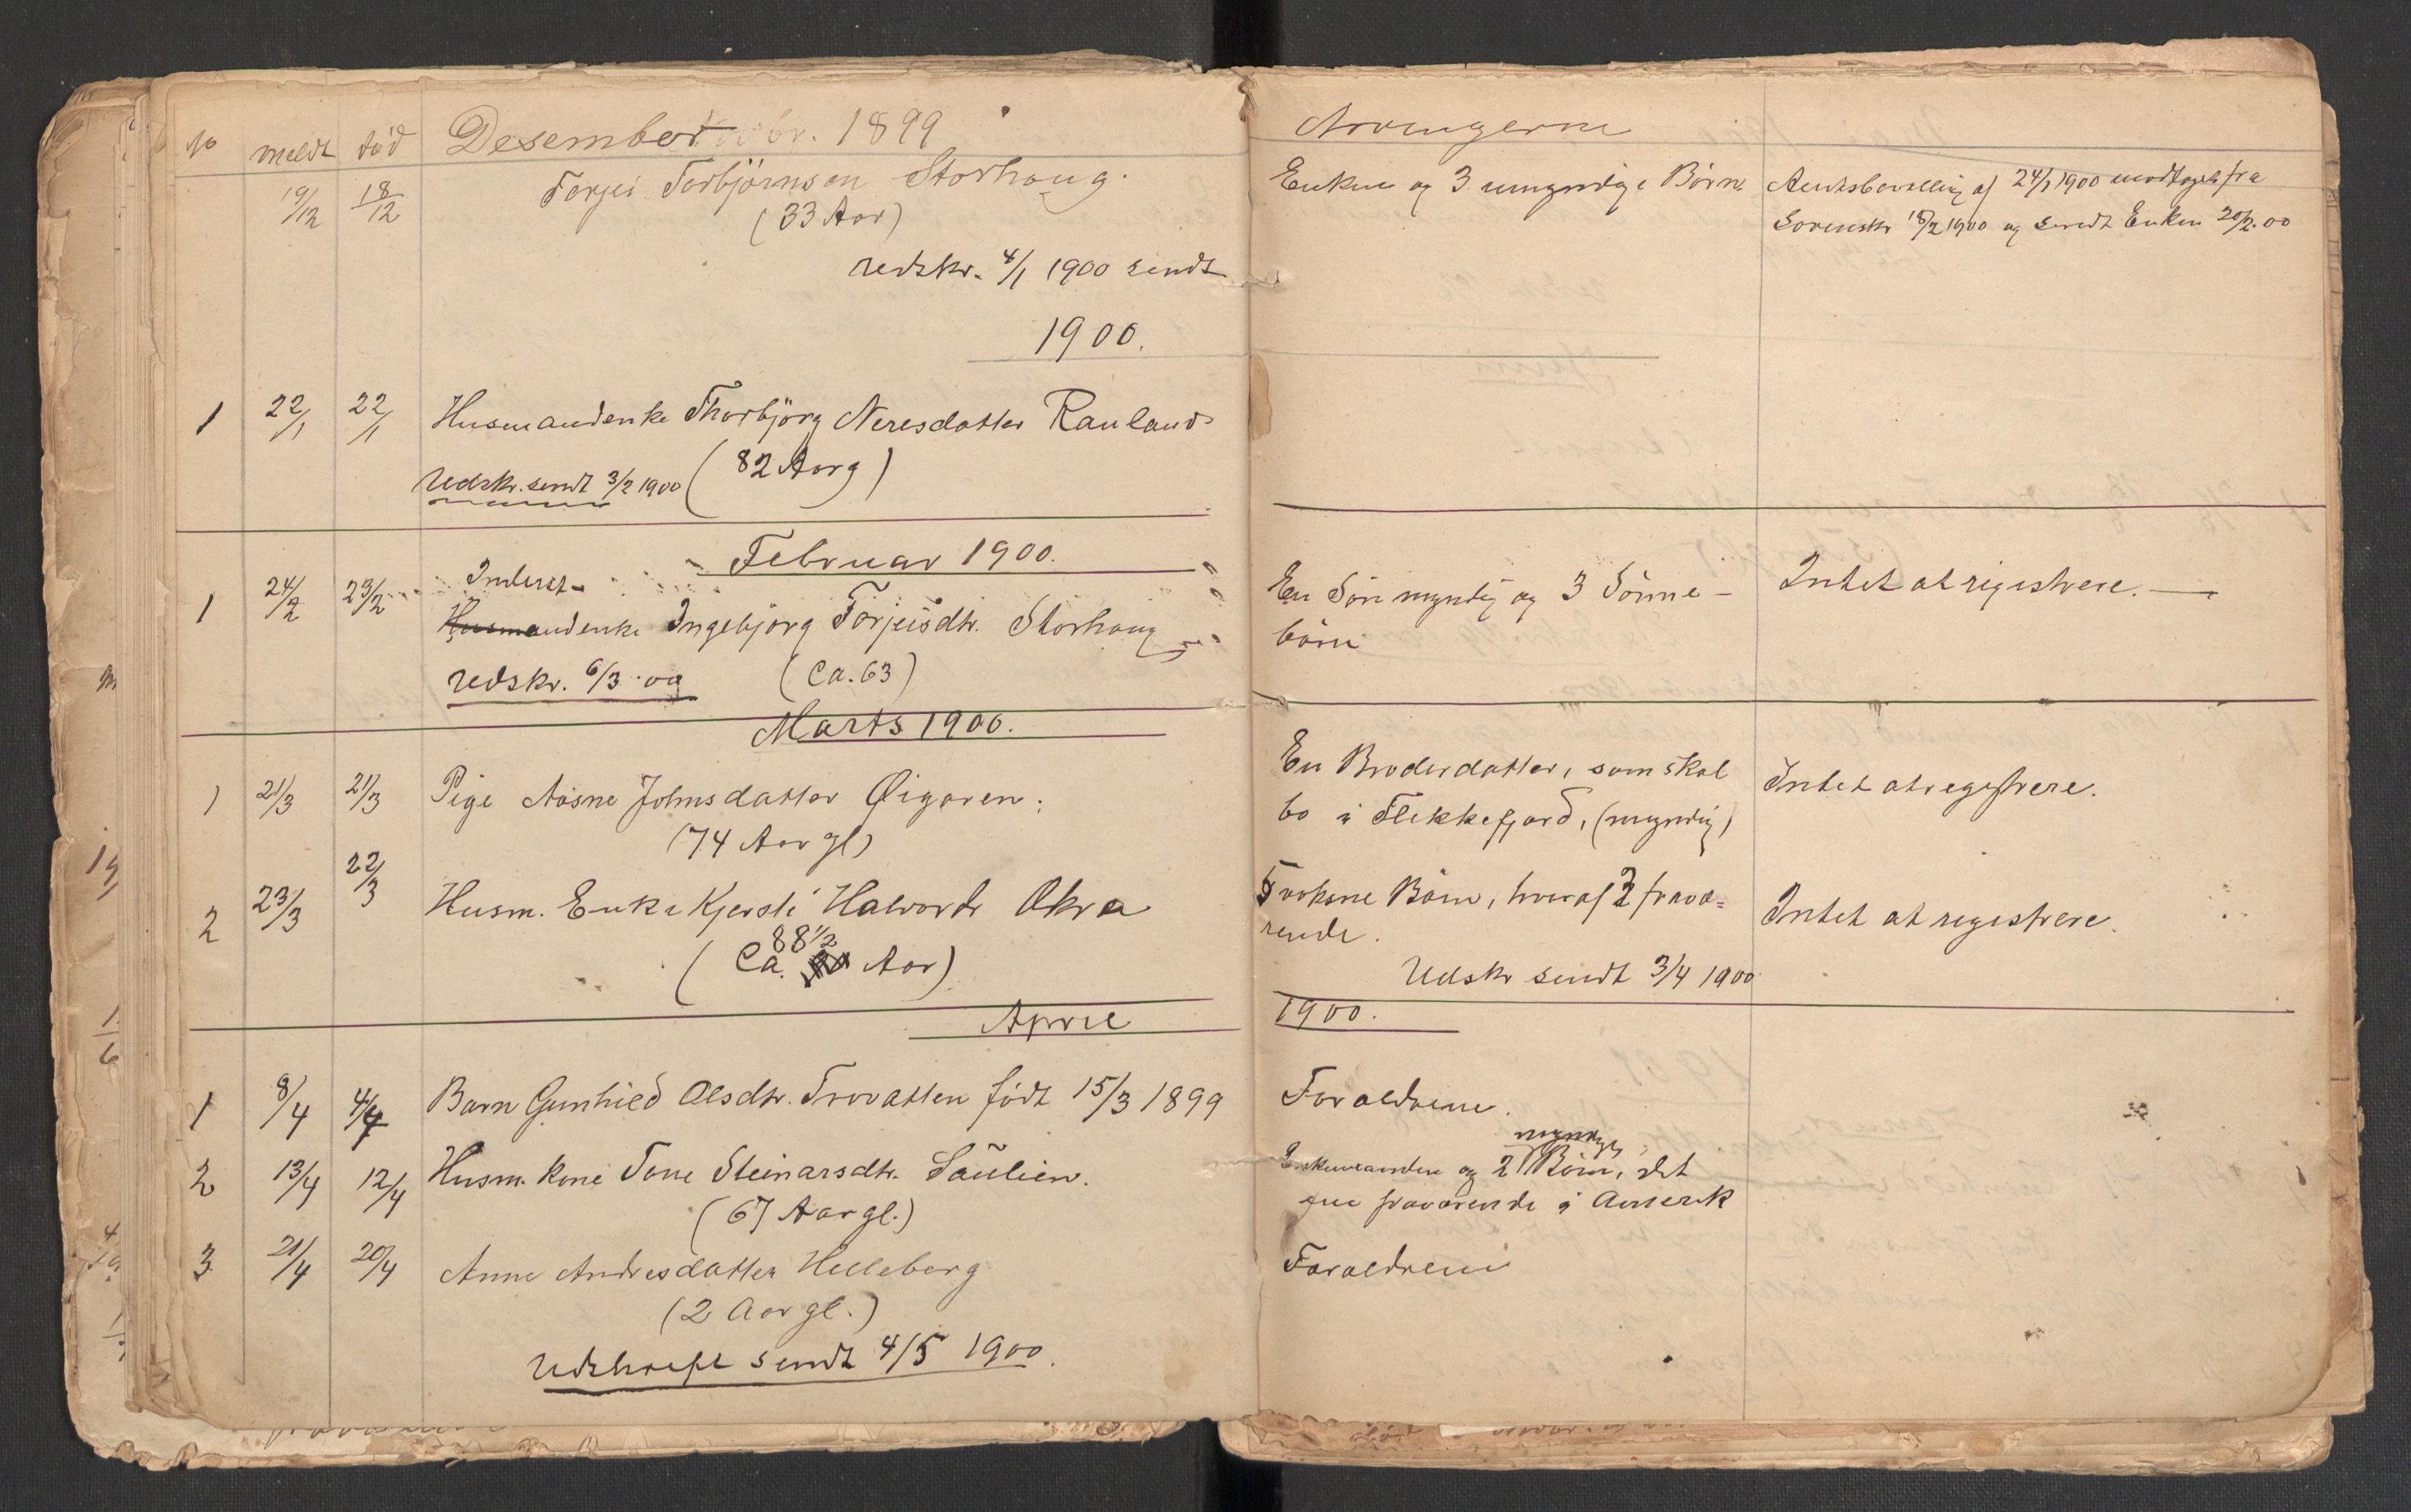 No meldt død Desember 1899 Arvingerne
19/12 18/12 Torjei Torbjörnsen Storhaug. Enken og 3 umyndige Börn. Amtsbevilling af 24/1 1900 modtaget fra
(33 Aar) Sorenskr 18/2 1900 og sendt Enken 20/2.00
Udskr. 4/1 1900 sendt
1900.
1 22/1 22/1 Husmandenke Thorbjörg Neresdatter Rauland
Udskr. sendt 3/2 1900 (82 Aarg)
Februar 1900.
1 24/2 23/2 Inderst- En Sön myndig og 3 Sönne- Intet at registrere. —
Husmandenke Ingebjörg Torjeisdtr. Storhaug börn
Udskr. 6/3 00 (Ca. 63)
Marts 1900.
1 21/3 21/3 Pige Aasne Johnsdatter Øigaren. En Broderdatter, som skal Intet at registrere.
(74 Aar gl) bo i Flekkefjord, (myndig)
2 23/3 22/3 Husm. Enke Kjersti Halvordr Okra Voksne Börn, hvoraf 2 fravæ=
rende. Intet at registrere.
(Ca. 88 1/2 Aar) Udskr sendt 3/4 1900
April 1900.
1 8/4 4/4 Barn Gunhild Olsdtr. Trovatten födt 15/3 1899 Foraeldrene.
2 13/4 12/4 Husm. kone Tone Steinarsdtr. Låulien. Enkemanden og 2 myndige Börn, det
(67 Aar gl.) ene fraværende i Amerik
3 21/4 20/4 Anne Andresdatter Helleberg Foraeldrene
(2 Aar gl.)
Udskrift sendt 4/5 1900.